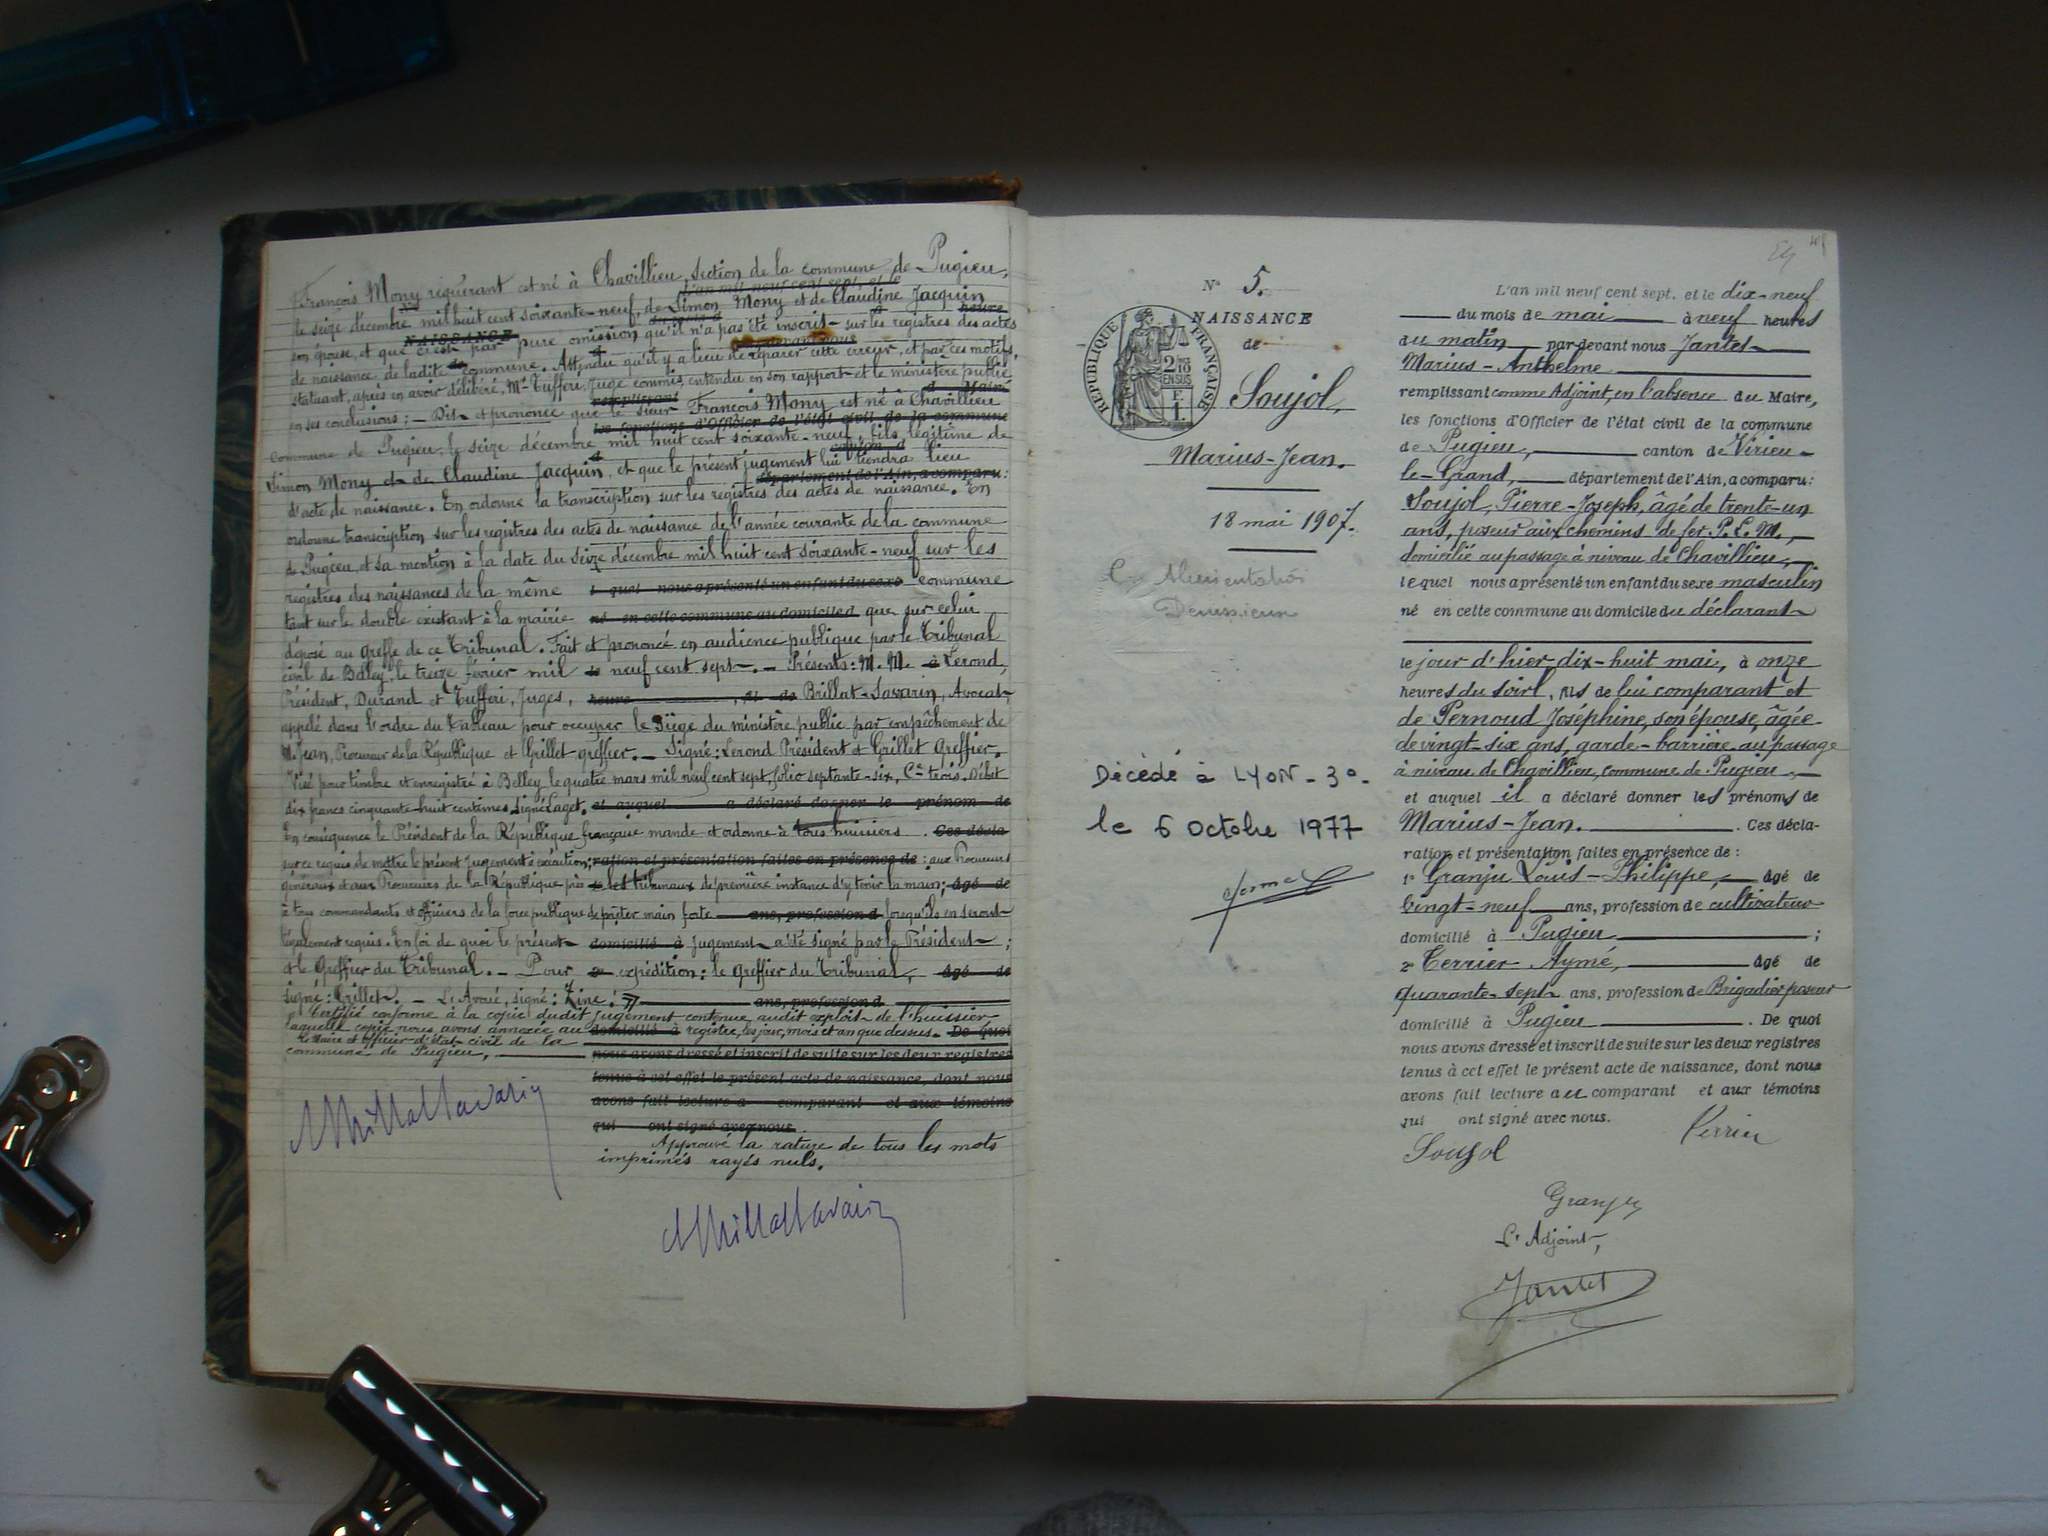 François Mony requérant est né à Chavillieu, section de la commune de Pugieu,
L'an mil neuf cent sept, et le
le seize décembre mil huit cent soixante-neuf, de Simon Mony et de Claudine Jacquin
heure
NAISSANCE
son épouse, et que c'est par pure omission qu'il n'a pas été inscrit sur les registres des actes
par devant nous
de naissance de ladite commune. Attendu qu'il y a lieu de réparer cette erreur, et par ces motifs,
statuant, après en avoir délibéré, Mr Tufferi, Juge commis, entendu en son rapport et le ministère public
remplissant d Maire
en ses conclusions; — Dit et prononce que le sieur François Mony est né à Chavillieu
les fonctions d'Officier de l'état civil de la commune
commune de Pugieu, le seize décembre mil huit cent soixante-neuf, fils légitime de
canton d
Simon Mony et de Claudine Jacquin, et que le présent jugement lui tiendra lieu
département de l'Ain, a comparu:
d'acte de naissance. En ordonne la transcription sur les registres des actes de naissance. En
ordonne transcription sur les registres des actes de naissance de l'année courante de la commune
de Pugieu, et sa mention à la date du seize décembre mil huit cent soixante-neuf sur les
registres des naissances de la même l quel nous a présenté un enfant du sexe commune
tant sur le double existant à la mairie né en cette commune au domicile d que sur celui
déposé au greffe de ce Tribunal. Fait et prononcé en audience publique par le Tribunal
civil de Belley, le treize février mil le neuf cent sept. — Présents: M. M. à Lerond,
Président, Durand et Tufferi, Juges, heure , fil de Brillat-Savarin, Avocat
appelé dans l'ordre du Tableau pour occuper le Siège du ministère public par empêchement de
M. Jean, Procureur de la République et Grillet greffier. — Signé: Lerond Président et Grillet Greffier.
Visé pour timbre et enregistré à Belley le quatre mars mil neuf cent sept, folio septante-six, Ce trois. Débet
dix francs cinquante-huit centimes, signé Laget. et auquel a déclaré donner le prénom de
En conséquence le Président de la République française mande et ordonne à tous huissiers . Ces décla
sur ce requis de mettre le présent Jugement à exécution; ration et présentation faites en présence de : aux Procureurs
généraux et aux Procureurs de la République près les tribunaux de première instance d'y tenir la main; âgé de
à tous commandants et officiers de la force publique de prêter main forte ans, profession d lorsqu'ils en seront
légalement requis. En foi de quoi le présent domicilié à jugement a été signé par le Président ;
et le Greffier du Tribunal. — Pour 2° expédition: le Greffier du Tribunal, âgé de
signé: Grillet. — L'Avoué, signé: ans, profession d
Certifié conforme à la copie dudit jugement contenue audit exploit de l'huissier,
laquelle copie nous avons annexée au domicilié à registre, les jour, mois et an que dessus. De quoi
Le Maire et Officier d'état civil de la
commune de Pugieu, nous avons dressé et inscrit de suite sur les deux registres
tenus à cet effet le présent acte de naissance, dont nous
avons fait lecture a comparant et aux témoins
qui ont signé avec nous.
Approuvé la rature de tous les mots
imprimés rayés nuls.
N° 5.
NAISSANCE
de
RÉPUBLIQUE FRANÇAISE
2/10 EN SUS
F. 1.
Soujol,
Marius-Jean.
18 mai 1907.
Alimentation
Décédé à LYON-3°
le 6 Octobre 1977
L'an mil neuf cent sept, et le dix-neuf
du mois de mai à neuf heures
du matin par devant nous Jantet
Marius-Anthelme
remplissant comme Adjoint, en l'absence du Maire,
les fonctions d'Officier de l'état civil de la commune
de Pugieu, canton de Virieu-
le-Grand, département de l'Ain, a comparu:
Soujol, Pierre-Joseph, âgé de trente-un
ans, poseur aux chemins de fer P.L.M.,
domicilié au passage à niveau de Chavillieu,
lequel nous a présenté un enfant du sexe masculin
né en cette commune au domicile du déclarant
le jour d'hier dix-huit mai, à onze
heures du soir, fils de lui comparant et
de Pernoud Joséphine, son épouse, âgée
de vingt-six ans, garde-barrière au passage
à niveau de Chavillieu, commune de Pugieu
et auquel il a déclaré donner les prénoms de
Marius-Jean. . Ces décla-
ration et présentation faites en présence de :
1° Granju Louis-Philippe, âgé de
Vingt-neuf ans, profession de cultivateur
domicilié à Pugieu ;
2° Terrier Aymé, âgé de
quarante-sept ans, profession de Brigadier poseur
domicilié à Pugieu . De quoi
nous avons dressé et inscrit de suite sur les deux registres
tenus à cet effet le présent acte de naissance, dont nous
avons fait lecture au comparant et aux témoins
qui ont signé avec nous.
Soujol
Granju
L'Adjoint,
Jantet